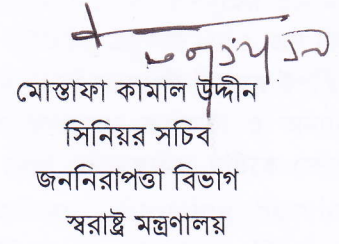 মোস্তাফা কামাল উদ্দীন
সিনিয়র সচিব
জননিরাপত্তা বিভাগ
স্বরাষ্ট্র মন্ত্রণালয়